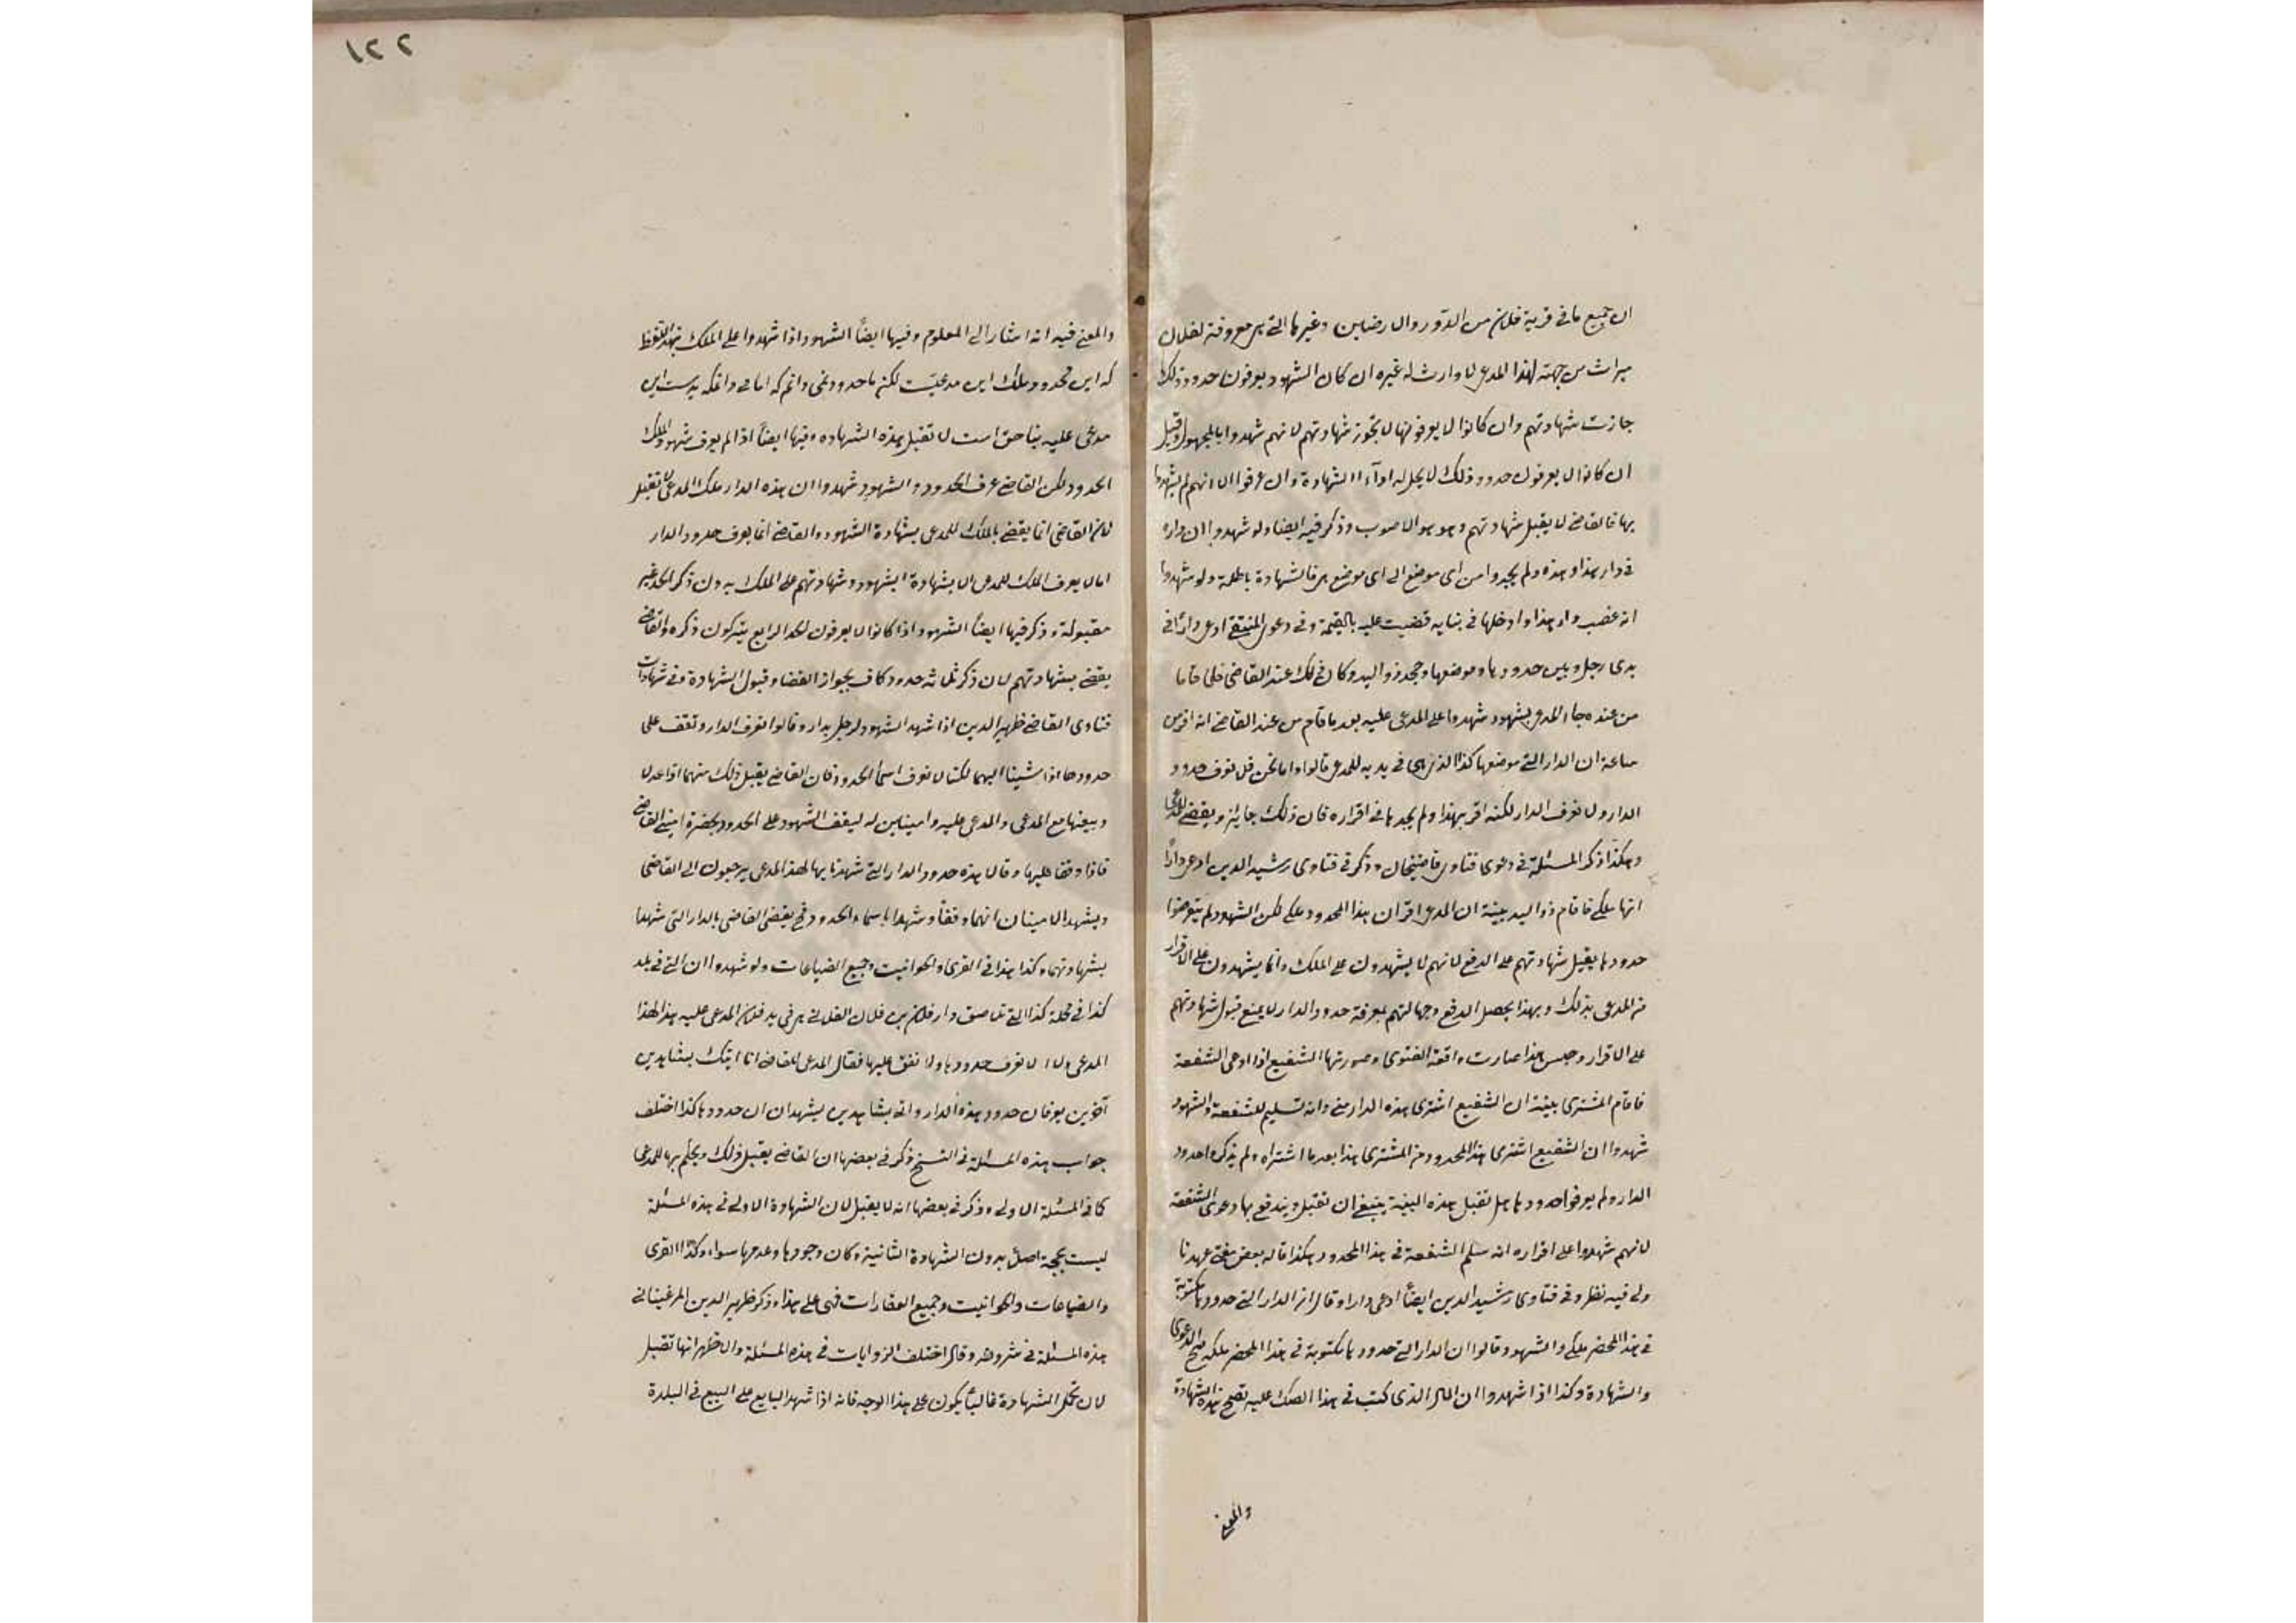 ان جميع ما فى قرية فلان من الدّور والارضاين وغيرها التى هى معروفة لفلان
ميراث من جهته لهذا المدعى لا وارث له غيره ان كان الشهود يعرفون حدود ذلك
جازت شهادتهم وان كانوا لا يعرفونها لا تجوز شهادتهم لانهم شهدوا بالمجهول وقيل
ان كانوا لا يعرفون حدود ذلك لا يحل له اداء الشهادة وان عرفوا الا انهم لم يشهدوا
بها فالقاضى لا يقبل شهادتهم وهو هو الاصوب وذكر فيه ايضا ولو شهدوا ان داره
فى دار هذا وهذه ولم يحدوا من اى موضع الى اى موضع هى فالشهادة باطلة ولو شهدوا
انه غصب دار هذا وادخلها فى بنايه قضيت عليه بالقيمة وفى دعوى المنتقى ادعى دارًا فى
يدى رجل وبين حدودها وموضعها وجحد ذو اليد وكان ذلك عند القاضى فلما قاما
من عنده جاء المدعى بشهود شهدوا على المدعى عليه بعد ما قام من عند القاضى انه اقر من
ساعة ان الدار التى موضعها كذا الذى هى فى يديه للمدعى قالوا واما نحن فلا نعرف حدود
الدار ولا نعرف الدار لكنه اقر بهذا ولم يحدها فى اقراره قال ذلك جايز ويقضى للمدعى
وهكذا ذكر المسئلة فى دعوى فتاوى قاضيخان وذكر فى فتاوى رشيد الدين ادعى دارًا
انها ملكى فاقام ذو اليد بينة ان المدعى اقر ان هذا المحدود ملكى لكن الشهود لم يتعرضوا
حدودها يقبل شهادتهم على الدفع لانهم لا يشهدون على الملك وانما يشهدون على الاقرار
من المدعى بذلك وبهذا يحصل الدفع وجهالتهم بمعرفة حدود الدار لا يمنع قبول شهادتهم
على الاقرار وجنس هذا صارت واقعة الفتوى وصورتها الشفيع اذا ادعى الشفعة
فاقام المشترى بينة ان الشفيع اشترى هذه الدار منى وانه تسليم للشفعة والشهود
شهدوا ان الشفيع اشترى هذا المحدود من المشترى هذا بعد ما اشتراه ولم يذكروا حدود
الدار ولم يعرفوا حدودها هل تقبل هذه البينة ينبغى ان تقبل ويندفع بها دعوى الشفعة
لانهم شهدوا على اقراره انه سلم الشفعة فى هذا المحدود هكذا قاله بعض مفتى عهدنا
ولى فيه نظر وفى فتاوى رشيد الدين ايضًا ادعى دارا وقال ان الدار التى حدودها مكتوبة
فى هذا المحضر ملكى والشهود قالوا ان الدار التى حدودها مكتوبة فى هذا المحضر ملكه صح الدعوى
والشهادة وكذا اذا شهدوا ان المال الذى كتب فى هذا الصك عليه تصح هذه الشهادة
والمعنى
١٢٢
والمعنى فيه انه اشار الى المعلوم وفيها ايضًا الشهود اذا شهدوا على الملك بهذا اللفظ
كه اين محدود ملك اين مدعيست لكن ما حدود نمى دانم كه اما مى دانم كه بدست اين
مدعى عليه بناحق است لا تقبل بهذه الشهاده وفيها ايضًا اذا لم يعرف شهود الملك
الحدود لكن القاضى عرف الحدود والشهود شهدوا ان هذه الدار ملك المدعى لا تقبل
لان القاضى انما يقضى بالملك للمدعى بشهادة الشهود والقاضى انما يعرف حدود الدار
اما لا يعرف الملك للمدعى الا بشهادة الشهود وشهادتهم على الملك بدون ذكر الحد غير
مقبولة وذكر فيها ايضًا الشهود اذا كانوا لا يعرفون الحد الرابع يتركون ذكره والقاضى
يقضى بشهادتهم لان ذكر ثلاثه حدود كاف بجواز القضا وقبول الشهادة وفى شهادات
فتاوى القاضى ظهير الدين اذا شهد الشهود لرجل بدار وقالوا نعرف الدار ونقف على
حدودها اذا مشينا اليها لكنا لا نعرف اسماء الحدود فان القاضى يقبل ذلك منهما اذا عدلا
ويبعثهما مع المدعى والمدعى عليه وامينين له ليقف الشهود على الحدود بحضرة امينى القاضى
فاذا وقفا عليها وقالا هذه حدود الدار التى شهدنا بها لهذا المدعى يرجعون الى القاضى
ويشهد الامينان انهما وقفًا وشهدا باسماء الحدود وح يقضى القاضى بالدار التى شهدا
بشهادتهما وكذا هذا فى القرى والحوانيت وجميع الضياعات ولو شهدوا ان التى فى بلد
كذا فى محلة كذا التى تلاصق دار فلان بن فلان الفلانى هى فى يد فلان المدعى عليه هذا لهذا
المدعى ولا لا نعرف حدودها ولا نقف عليها فقال المدعى للقاضى انا اتيك بشاهدين
آخرين يعرفان حدود هذه الدار واتى بشاهدين يشهدان ان حدودها كذا اختلف
جواب هذه المسئلة فى النسخ ذكر فى بعضها ان القاضى يقبل ذلك ويحكم بها للمدعى
كما فى المسئلة الاولى وذكر فى بعضها انه لا يقبل لان الشهادة الاولى فى هذه المسئلة
ليست بحجة اصلاً بدون الشهادة الثانية وكان وجودها وعدمها سواء وكذا القرى
والضياعات والحوانيت وجميع العقارات فهى على هذا وذكر ظهير الدين المرغينانى
هذه المسئلة فى شروطه وقال اختلف الروايات فى هذه المسئلة والاظهر انها تقبل
لان تحمل الشهادة غالبًا يكون على هذا الوجه فانه اذا شهد البايع على البيع فى البلدة